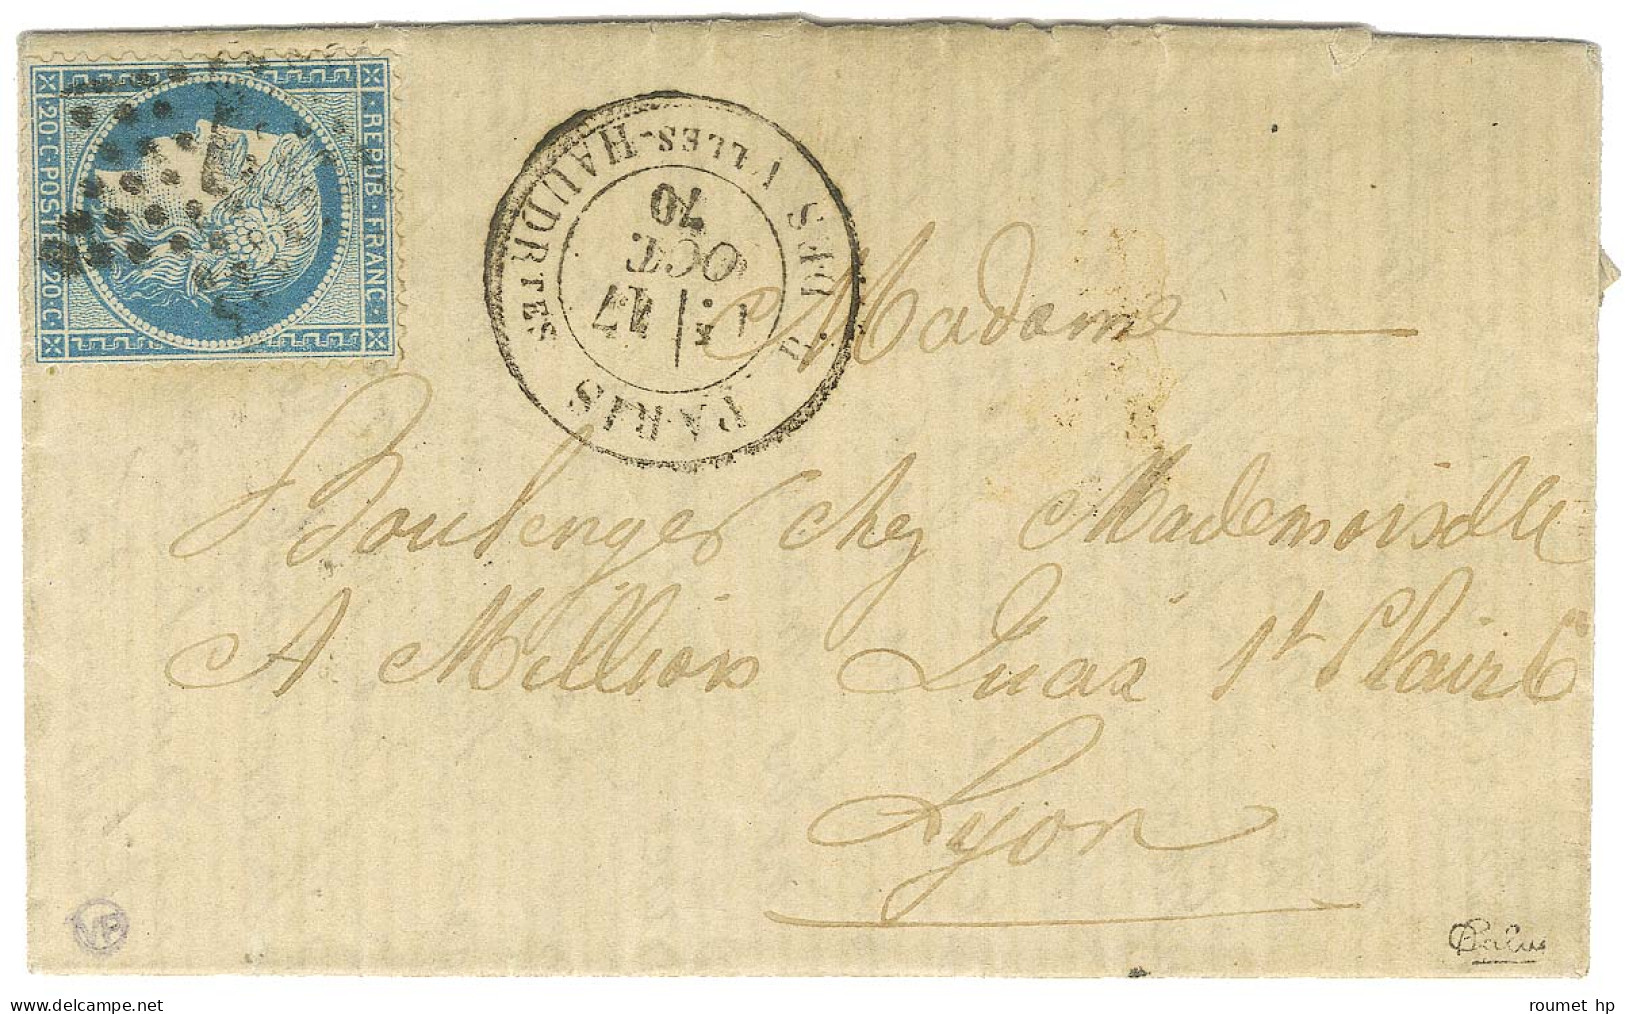 REPUB·FRANC·
20·C·POSTE·20·C·
PARIS
R. DES VLLES-HAUDRTES
17
OCT.
70
Madame
Boulenger chez Mademoiselle
A Million Quai St Clair 6
Lyon
VP
Calves
roumet hp